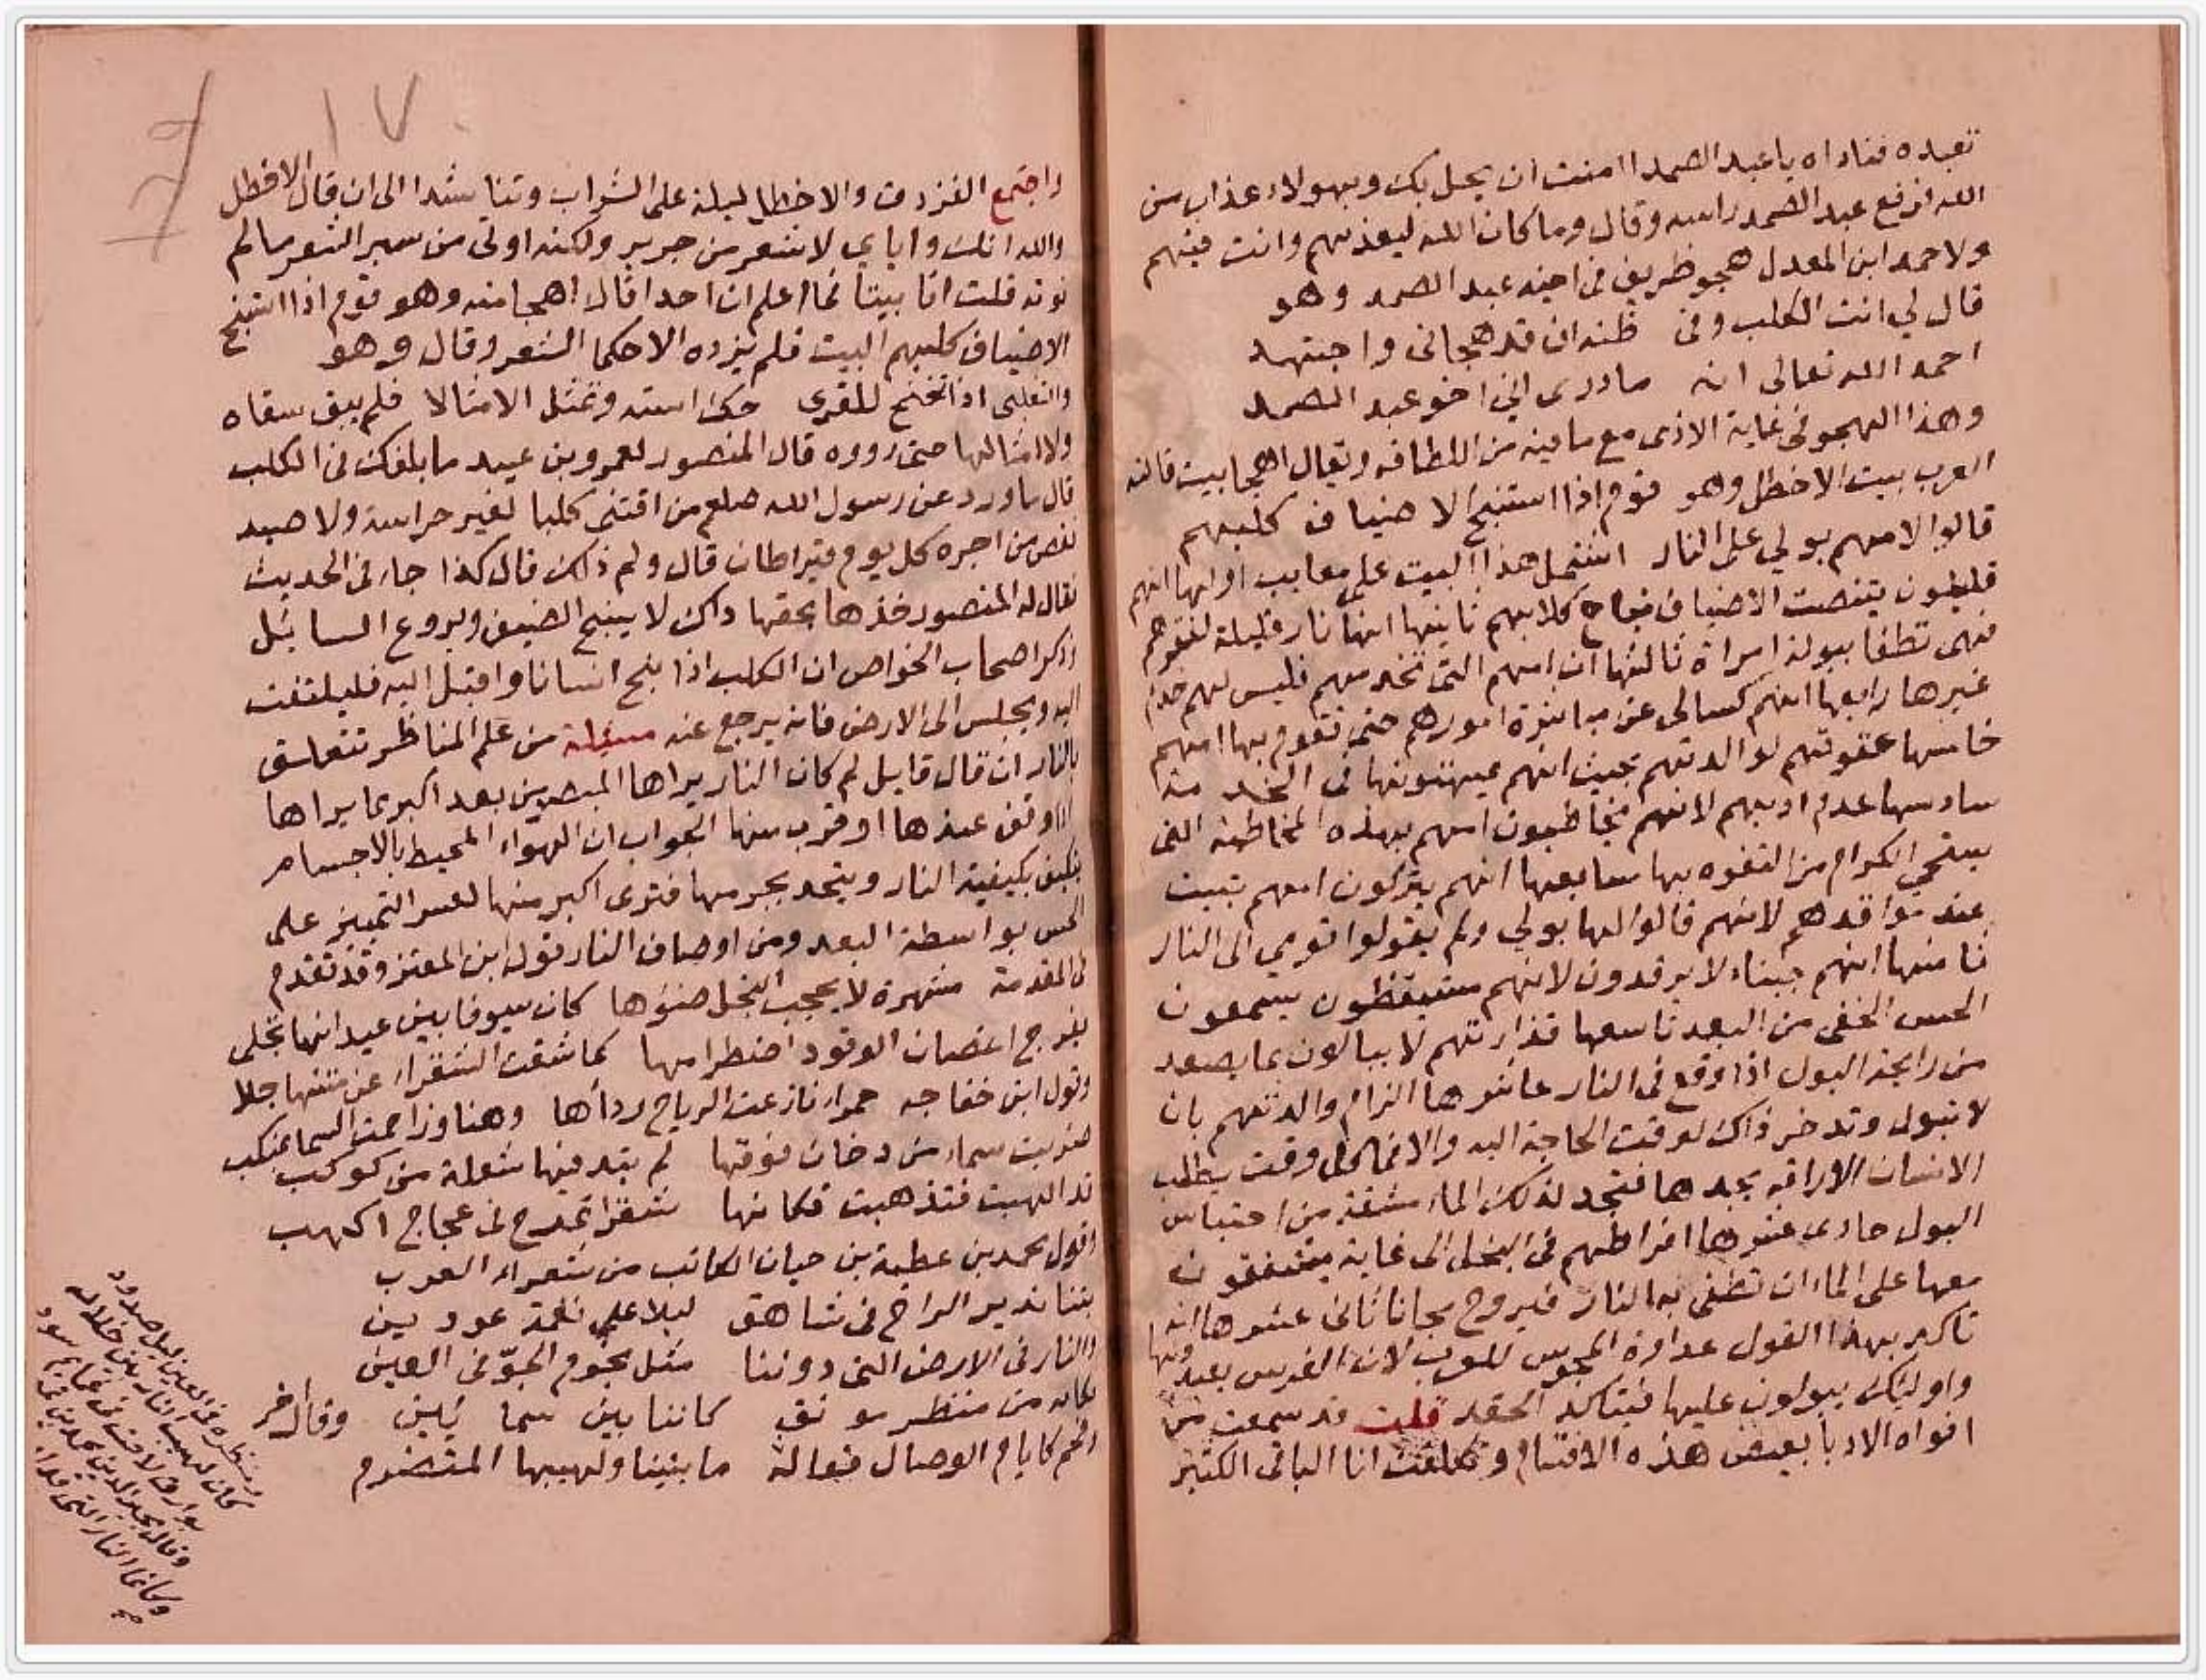 تعبده فناداه يا عبد الصمد اامنت ان يحل بك وبهولاء عذاب من
الله فرفع عبد الصمد راسه وقال وما كان الله ليعذبهم وانت فيهم
ولاحمد ابن المعدل هجو ظريف في اخيه عبد الصمد وهو
قال لي انت الكلب وفي ظنه ان قد هجاني واجتهد
احمد الله تعالى انه ما درى اني اخو عبد الصمد
وهذا الهجو في غاية الاذى مع ما فيه من اللطافه ويقال اهجا بيت قالته
العرب بيت الاخطل وهو قوم اذا استنبح الاضياف كلبهم
قالوا لامهم بولي على النار اشتمل هذا البيت على معايب اولها انهم
يتنصت الاضياف نباح كلابهم ثانيها انها نار قليلة لفقرهم
فهى تطفا ببولة امراة ثالثها ان امهم التي تخدمهم فليس لهم خدام
غيرها رابعها انهم كسالى عن مباشرة امورهم حتى تقوم بها امهم
خامسها عقوقهم لوالدتهم بحيث انهم يمتهنونها في الخدمة
سادسها عدم ادبهم لانهم يخاطبون امهم بهذه المخاطبة التي
يستحي الكرام من التفوه بها سابعها انهم يتركون امهم تبيت
عند مواقدهم لانهم قالوا لها بولي ولم يقولوا قومي الى النار
ثامنها انهم جبناء لا يرقدون لانهم مستيقظون يسمعون
الحس الخفي من البعد تاسعها قذارتهم لا يبالون بما يصعد
من رايحة البول اذا وقع في النار عاشرها الزام والدتهم بان
لا تبول وتدخر ذاك لوقت الحاجة اليه والا فما كل وقت يطلب
الانسان الاراقه يجدها فتجد لذلك الماء مشقة من احتباس
البول حادي عشرها افراطهم في البخل الى غاية يشفقون
معها على الماء ان تطفي به النار فيروح مجانا ثاني عشرها انه
تاكد بهذا القول عداوة المجوس للعرب لان الفرس يعبدونها
واوليك يبولون عليها فيتاكد الحقد قلت قد سمعت من
افواه الادبا بعض هذه الاقسام وتكلفت انا الباقي الكثير
١٧
واجتمع الفرزدق والاخطل ليلة على الشراب وتناشدا الى ان قال الاخطل
والله انك واياي لاشعر من جرير ولكنه اوتي من سير الشعر ما لم
نوته قلت انا بيتا فما اعلم ان احدا قال اهجا منه وهو قوم اذا استنبح
الاضياف كلبهم البيت فلم يروه الا حكما الشعر وقال وهو
والتغلبي اذا تنحنح للقرى حك استه وتمثل الامثالا فلم يبق سقاه
ولا امثالها حتى رووه قال المنصور لعمرو بن عبيد ما بلغك في الكلب
قال ما ورد عن رسول الله صلعم من اقتنى كلبا لغير حراسة ولا صيد
نقص من اجره كل يوم قيراطان قال ولم ذاك قال كذا جاء في الحديث
فقال له المنصور خذها بحقها ذاك لا ينبح الضيف ويروع السايل
وذكر اصحاب الخواص ان الكلب اذا نبح انسانا واقبل اليه فليلتفت
اليه ويجلس الى الارض فانه يرجع عنه مسئلة من علم المناظر تتعلق
بالنار ان قال قايل لم كان النار يراها المبصر من بعد اكبر مما يراها
اذا وقف عندها او قرب منها الجواب ان الهواء المحيط بالاجسام
يتكيف بكيفية النار ويتحد بجرمها فترى اكبر منها لعسر التمييز على
الحس بواسطة البعد ومن اوصاف النار قول ابن المعتز وقد تقدم
في المقدمة مشهرة لا يحجب البخل ضوءها كان سيوفا بين عيدانها تجلى
يفرج اغصان الوقود اضطرامها كما شقت الشقراء عن متنها جلا
وقول ابن خفاجه حمراء نازعت الرياح رداءها وهنا وزاحمت السماء بمنكب
ضربت سماء من دخان فوقها لم تبد فيها شعلة من كوكب
قد الهبت فتذهبت فكانها شقراء تمرح في عجاج اكهب
وقول محمد بن عطية بن حيان الكاتب من شعراء العرب
بتنا ندير الراح في شاهق ليلا على نغمة عودين
والنار في الارض التي دوننا مثل نجوم الجوّ في العين
فياله من منظر مونق كاننا بين سماءين وقال اخر
فحم كايام الوصال فعاله ما بيننا ولهيبها المتضرم
كان لهيب النار بين خلاله